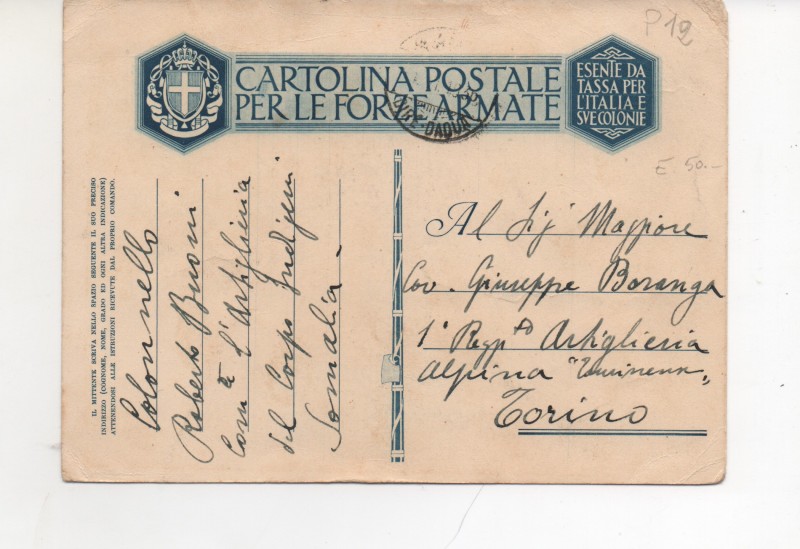 P12
CARTOLINA POSTALE
PER LE FORZE ARMATE
ESENTE DA
TASSA PER
L'ITALIA E
SVE COLONIE
E. 50.-
IL MITTENTE SCRIVA NELLO SPAZIO SEGUENTE IL SUO PRECISO
INDIRIZZO (COGNOME, NOME, GRADO ED OGNI ALTRA INDICAZIONE)
ATTENENDOSI ALLE ISTRUZIONI RICEVUTE DAL PROPRIO COMANDO.
Colonnello
Roberto Buoni
Com.te l'Artiglieria
del Corpo Indigeni
Somalia -
Al Sig. Maggiore
Cav. Giuseppe Boranga
1° Regg.to Artiglieria
Alpina "Taurinense"
Torino